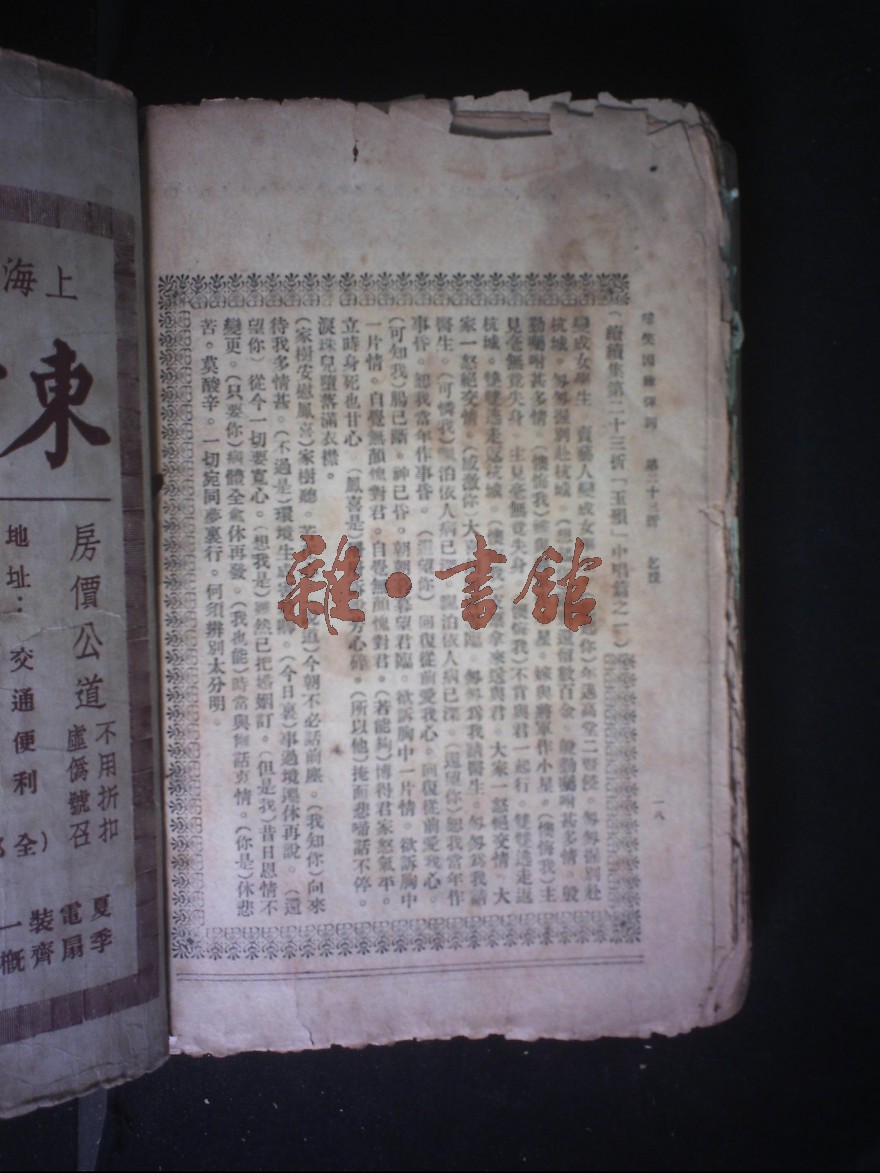 啼笑因緣彈詞 第二十三折 一八
(續續集第二十三折「玉殞」中唱篇之一)
變成女學生 賣藝人變成女 你)年邁高堂二豎侵。匆匆握別赴
杭城。匆匆握別赴杭城。 留數百金。殷勤囑咐甚多情。殷
勤囑咐甚多情。(懊悔我) 星。嫁與將軍作小星。(懊悔我)主
見毫無竟失身。主見毫無竟失身。 我)不肯與君一起行。雙雙逃走返
杭城。雙雙逃走返杭城。(懊 拿來送與君。大家一怒絕交情。大
家一怒絕交情。(感激你)大 臨。匆匆爲我請醫生。匆匆爲我請
醫生。(可憐我)飄泊依人病已 飄泊依人病已深。(還望你)恕我當年作
事昏。恕我當年作事昏。(還望你)回復從前愛我心。回復從前愛我心。
(可知我)腸已斷。神已昏。朝朝 暮望君臨。欲訴胸中一片情。欲訴胸中
一片情。自覺無顏愧對君。自覺無顏愧對君。(若能夠)博得君家怒氣平。
立時身死也甘心。(鳳喜是) 芳心碎。(所以他)掩面悲啼話不停。
淚珠兒墮落滿衣襟。
(家樹安慰鳳喜)家樹聽。 道)今朝不必話前塵。(我知你)向來
待我多情甚。(不過是)環境生 (今日裏)事過境遷休再說。(還
望你)從今一切要寬心。(想我是)雖然已把婚姻訂。(但是我)昔日恩情不
變更。(只要你)病體全愈休再發。(我也能)時常與你話衷情。(你是)休悲
苦。莫酸辛。一切宛同夢裏行。何須辨別太分明。
上海
東
房價公道
不用折扣
虛僞號召
地址:交通便利
全)
夏季
電扇
裝齊
一概
雜·書館